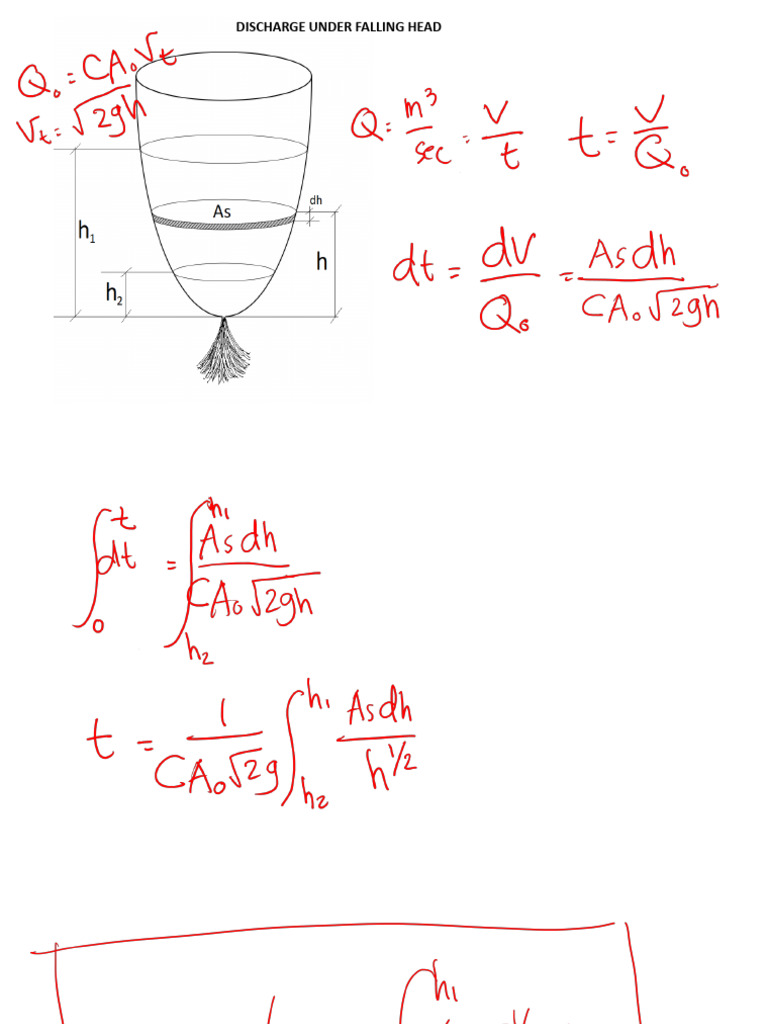 DISCHARGE UNDER FALLING HEAD
Q₀ = CA₀ √t
Vt = √2gh
Q = m³/sec = V/t
t = V/Q₀
dh
As
h₁
h
h₂
dt = dV/Q₀ = Asdh/CA₀√2gh
∫₀ᵗ dt = ∫h₂^h₁ Asdh/CA₀√2gh
t = 1/CA₀√2g ∫h₂^h₁ Asdh/h^1/2
h₁